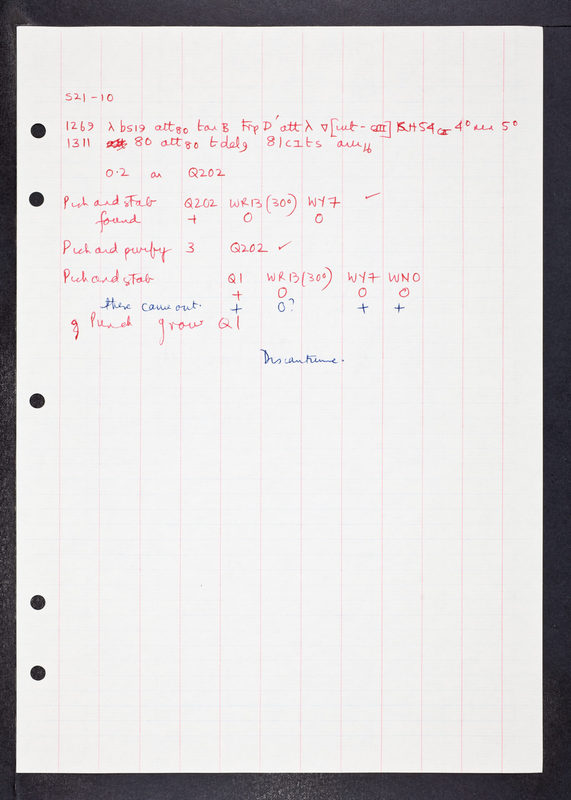 S21-10
1269 λ b519 att80 tonB trpD' att λ ∇ [int - CIII] SH54 4° 5°
1311 80 att80 tdel9 81CIts
0.2 on Q202
Pick and stab Q202 WR13 (30°) WY7 ✓
found + 0 0
Pick and purify 3 Q202 ✓
Pick and stab Q1 WR13 (30°) WY7 WN0
+ 0 0 0
these came out. + 0? + +
grow Q1
Discontinue.